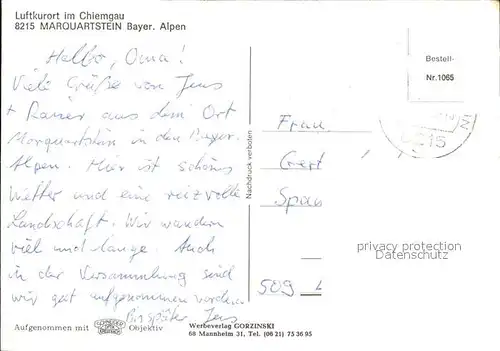 Luftkurort im Chiemgau
8215 MARQUARTSTEIN Bayer. Alpen
Hallo, Oma!
Viele Grüße von Jens
+ Rainer aus dem Ort
Marquartstein in den Bayer.
Alpen. Hier ist schönes
Wetter und eine reizvolle
Landschaft. Wir wandern
viel und lange. Auch
in der Versammlung sind
wir gut aufgenommen worden.
Bis später Jens
Aufgenommen mit
Objektiv
Nachdruck verboten
Werbeverlag GORZINSKI
68 Mannheim 31, Tel. (06 21) 75 36 95
Bestell-
Nr. 1065
8215
Frau
Gert
Span
509
privacy protection
Datenschutz